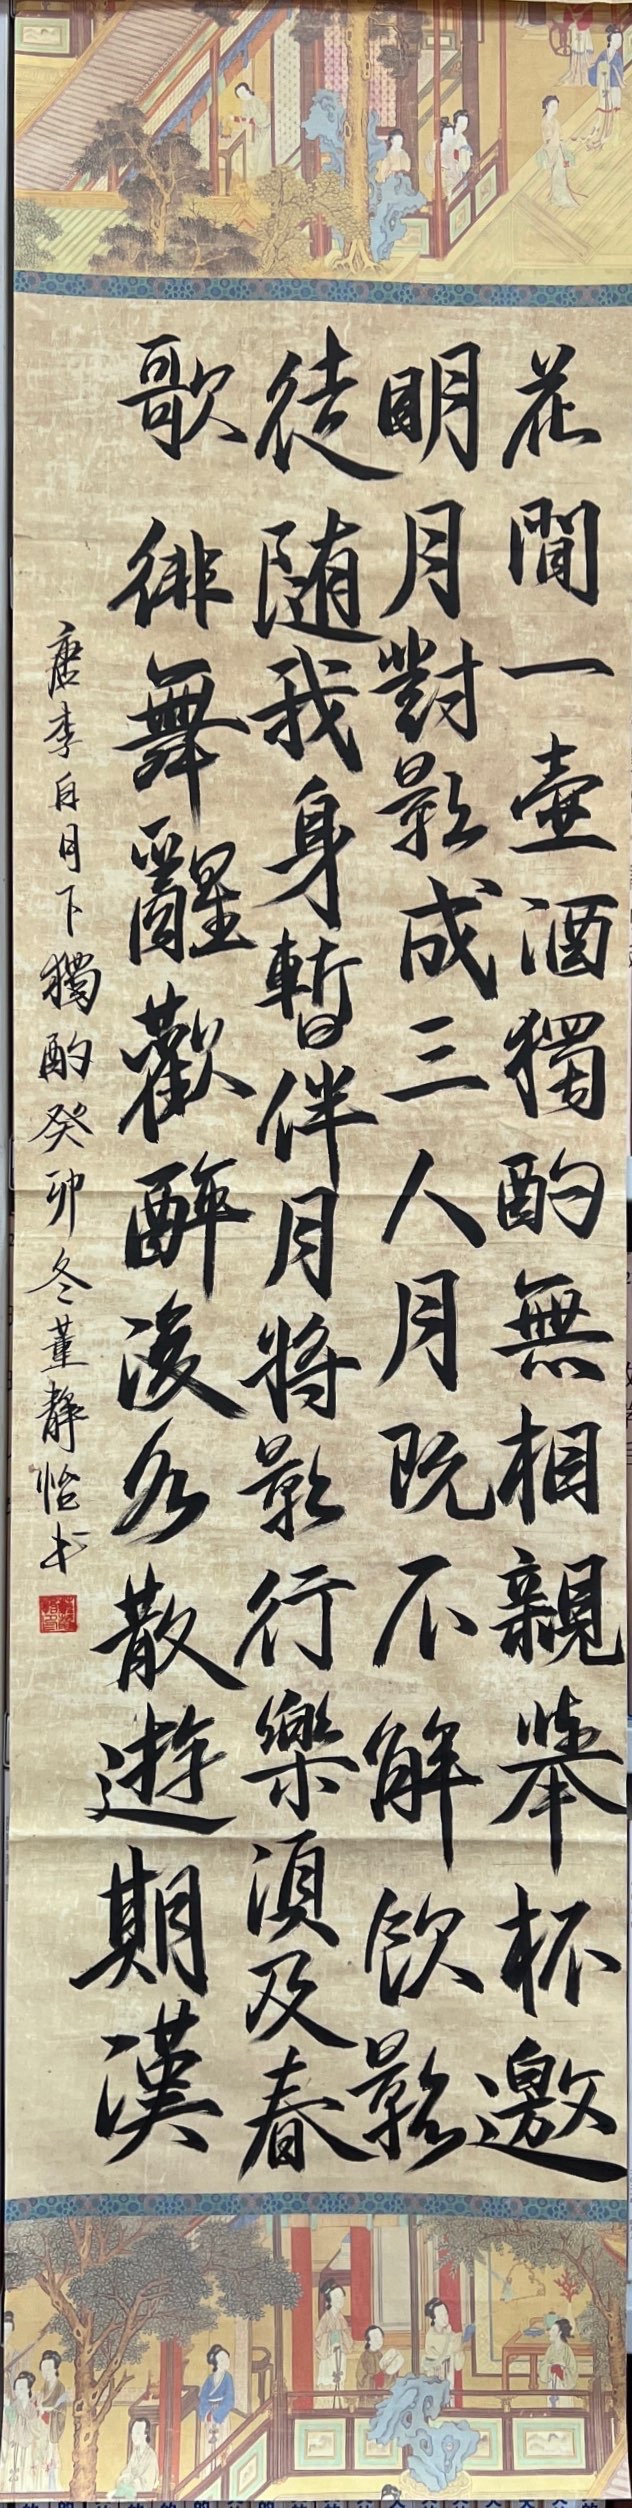 花間一壺酒獨酌無相親舉杯邀
明月對影成三人月既不解飲影
徒随我身暫伴月將影行樂須及春
歌徘舞醒歡醉後各散遊期漢
唐李白月下獨酌癸卯冬董静怡书